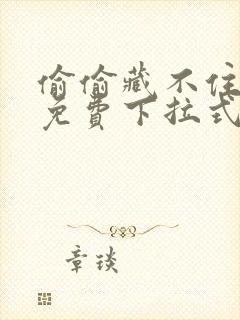 偷偷藏不住
免費下拉式
章琰